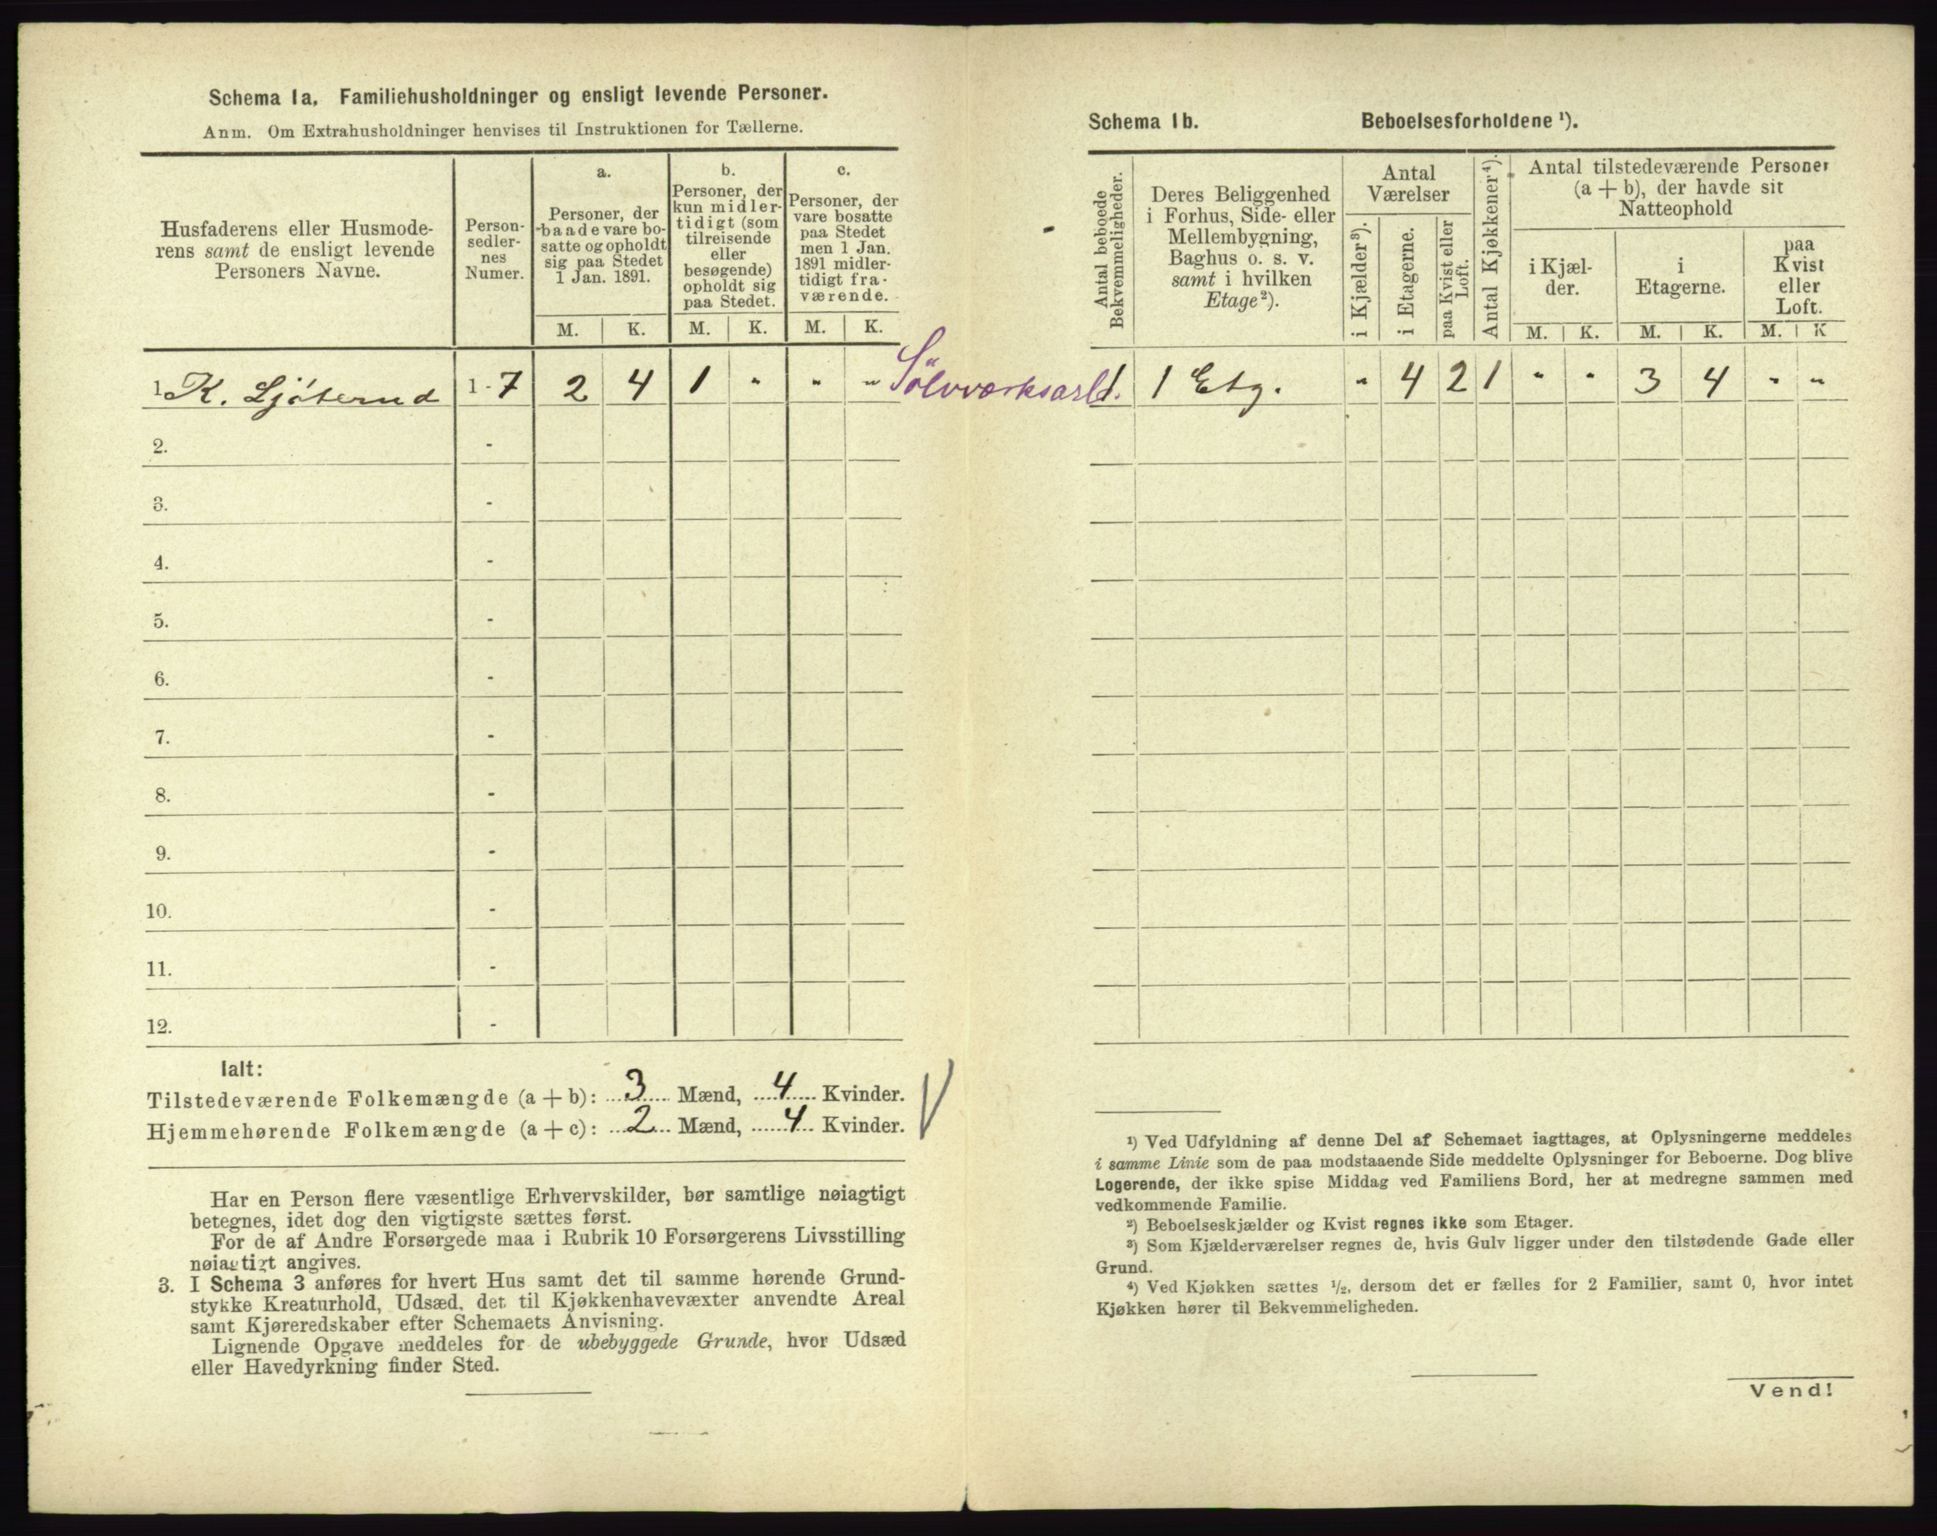 Schema 1a. Familiehusholdninger og ensligt levende Personer.
Anm. Om Extrahusholdninger henvises til Instruktionen for Tællerne.
Husfaderens eller Husmode-
rens samt de ensligt levende
Personers Navne.
Person-
sedler-
nes
Numer.
a.
Personer, der
baade vare bo-
satte og opholdt
sig paa Stedet
1 Jan. 1891.
b.
Personer, der
kun midler-
tidigt (som
tilreisende
eller
besøgende)
opholdt sig
paa Stedet.
c.
Personer, der
vare bosatte
paa Stedet
men 1 Jan.
1891 midler-
tidigt fra-
værende.
M. K. M. K. M. K.
1 K. Ljøterud 1 - 7 2 4 1 " " " Sølvværksarbd.
2. -
3. -
4. -
5. -
6. -
7. -
8. -
9. -
10. -
11. -
12. -
Ialt:
Tilstedeværende Folkemængde (a + b): 3 Mænd, 4 Kvinder.
Hjemmehørende Folkemængde (a + c): 2 Mænd, 4 Kvinder.
Har en Person flere væsentlige Erhvervskilder, bør samtlige nøiagtigt
betegnes, idet dog den vigtigste sættes først.
For de af Andre Forsørgede maa i Rubrik 10 Forsørgerens Livsstilling
nøiagtigt angives.
3. I Schema 3 anføres for hvert Hus samt det til samme hørende Grund-
stykke Kreaturhold, Udsæd, det til Kjøkkenhavevæxter anvendte Areal
samt Kjøreredskaber efter Schemaets Anvisning.
Lignende Opgave meddeles for de ubebyggede Grunde, hvor Udsæd
eller Havedyrkning finder Sted.
Schema 1b. Beboelsesforholdene ¹).
Antal beboede
Bekvemmeligheder.
Deres Beliggenhed
i Forhus, Side- eller
Mellembygning,
Baghus o. s. v.
samt i hvilken
Etage ²).
Antal
Værelser
i Kjælder ³).
i Etagerne.
paa Kvist eller
Loft.
Antal Kjøkkener ⁴).
Antal tilstedeværende Personer
(a + b), der havde sit
Natteophold
i Kjæl-
der.
i
Etagerne.
paa
Kvist
eller
Loft.
M. K. M. K. M. K
1 1 Etg. " 4 2 1 " " 3 4 " "
¹) Ved Udfyldning af denne Del af Schemaet iagttages, at Oplysningerne meddeles
i samme Linie som de paa modstaaende Side meddelte Oplysninger for Beboerne. Dog blive
Logerende, der ikke spise Middag ved Familiens Bord, her at medregne sammen med
vedkommende Familie.
²) Beboelseskjælder og Kvist regnes ikke som Etager.
³) Som Kjælderværelser regnes de, hvis Gulv ligger under den tilstødende Gade eller
Grund.
⁴) Ved Kjøkken sættes ½, dersom det er fælles for 2 Familier, samt 0, hvor intet
Kjøkken hører til Bekvemmeligheden.
Vend!